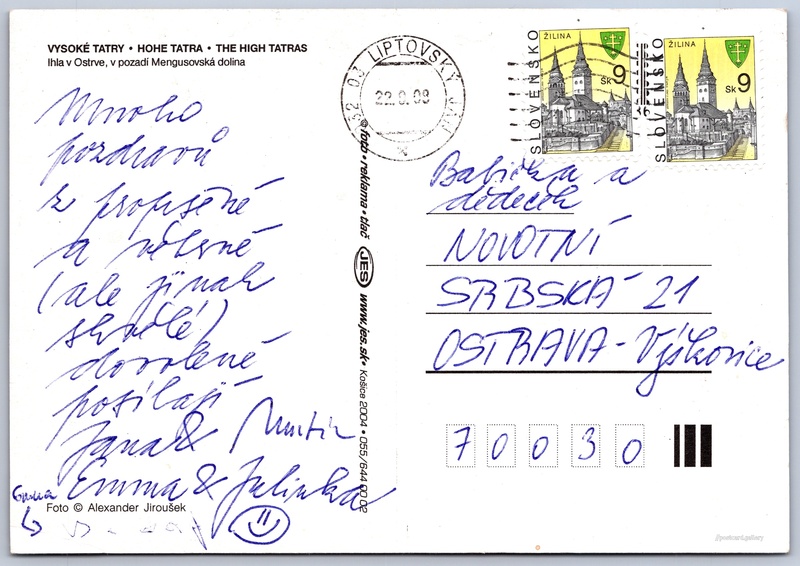 VYSOKÉ TATRY • HOHE TATRA • THE HIGH TATRAS
Ihla v Ostrve, v pozadí Mengusovská dolina
Mnoho
pozdravů
z propršené
a větrné
(ale jinak
skvělé)
dovolené
posílají
Jana & Martin
Emma & Julinka
Emma
Foto © Alexander Jiroušek
foto • reklama • tlač JES www.jes.sk • Košice 2004 • 055/644 00 02
32 03 LIPTOVSKÝ
22.9.08
SLOVENSKO
ŽILINA
9
Sk
SLOVENSKO
ŽILINA
9
Sk
Babička a
dědeček
NOVOTNÍ
SRBSKÁ 21
OSTRAVA - Výškovice
7 0 0 3 0
//postcard.gallery